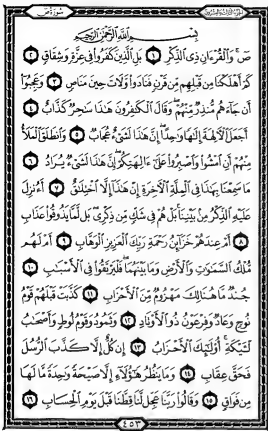 الجزء الثالث والعشرون سُورَةُ صٓ
بِسْمِ ٱللَّهِ ٱلرَّحْمَٰنِ ٱلرَّحِيمِ
صٓ ۚ وَٱلْقُرْءَانِ ذِى ٱلذِّكْرِ ١ بَلِ ٱلَّذِينَ كَفَرُوا۟ فِى عِزَّةٍ وَشِقَاقٍ ٢
كَمْ أَهْلَكْنَا مِن قَبْلِهِم مِّن قَرْنٍ فَنَادَوا۟ وَّلَاتَ حِينَ مَنَاصٍ ٣ وَعَجِبُوٓا۟
أَن جَآءَهُم مُّنذِرٌ مِّنْهُمْ ۖ وَقَالَ ٱلْكَٰفِرُونَ هَٰذَا سَٰحِرٌ كَذَّابٌ ٤
أَجَعَلَ ٱلْءَالِهَةَ إِلَٰهًا وَٰحِدًا ۖ إِنَّ هَٰذَا لَشَىْءٌ عُجَابٌ ٥ وَٱنطَلَقَ ٱلْمَلَأُ
مِنْهُمْ أَنِ ٱمْشُوا۟ وَٱصْبِرُوا۟ عَلَىٰٓ ءَالِهَتِكُمْ ۖ إِنَّ هَٰذَا لَشَىْءٌ يُرَادُ ٦
مَا سَمِعْنَا بِهَٰذَا فِى ٱلْمِلَّةِ ٱلْءَاخِرَةِ إِنْ هَٰذَآ إِلَّا ٱخْتِلَٰقٌ ٧ أَءُنزِلَ
عَلَيْهِ ٱلذِّكْرُ مِنۢ بَيْنِنَا ۚ بَلْ هُمْ فِى شَكٍّ مِّن ذِكْرِى ۖ بَل لَّمَّا يَذُوقُوا۟ عَذَابِ
٨ أَمْ عِندَهُمْ خَزَآئِنُ رَحْمَةِ رَبِّكَ ٱلْعَزِيزِ ٱلْوَهَّابِ ٩ أَمْ لَهُم
مُّلْكُ ٱلسَّمَٰوَٰتِ وَٱلْأَرْضِ وَمَا بَيْنَهُمَا ۖ فَلْيَرْتَقُوا۟ فِى ٱلْأَسْبَٰبِ ١٠
جُندٌ مَّا هُنَالِكَ مَهْزُومٌ مِّنَ ٱلْأَحْزَابِ ١١ كَذَّبَتْ قَبْلَهُمْ قَوْمُ
نُوحٍ وَعَادٌ وَفِرْعَوْنُ ذُو ٱلْأَوْتَادِ ١٢ وَثَمُودُ وَقَوْمُ لُوطٍ وَأَصْحَٰبُ
لْـَٔيْكَةِ ۚ أُو۟لَٰٓئِكَ ٱلْأَحْزَابُ ١٣ إِن كُلٌّ إِلَّا كَذَّبَ ٱلرُّسُلَ
فَحَقَّ عِقَابِ ١٤ وَمَا يَنظُرُ هَٰٓؤُلَآءِ إِلَّا صَيْحَةً وَٰحِدَةً مَّا لَهَا
مِن فَوَاقٍ ١٥ وَقَالُوا۟ رَبَّنَا عَجِّل لَّنَا قِطَّنَا قَبْلَ يَوْمِ ٱلْحِسَابِ ١٦
٤٥٣